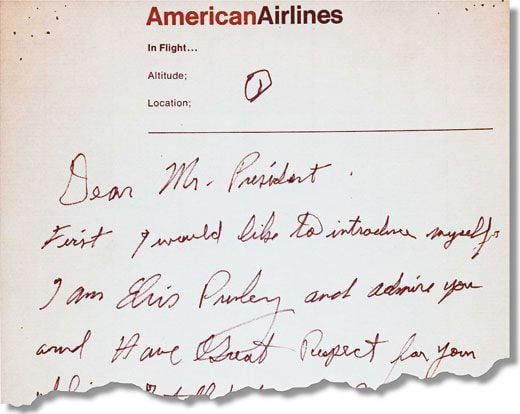 AmericanAirlines
In Flight...
Altitude;
Location;
1
Dear Mr. President.
First I would like to introduce myself.
I am Elvis Presley and admire you
and Have Great Respect for your